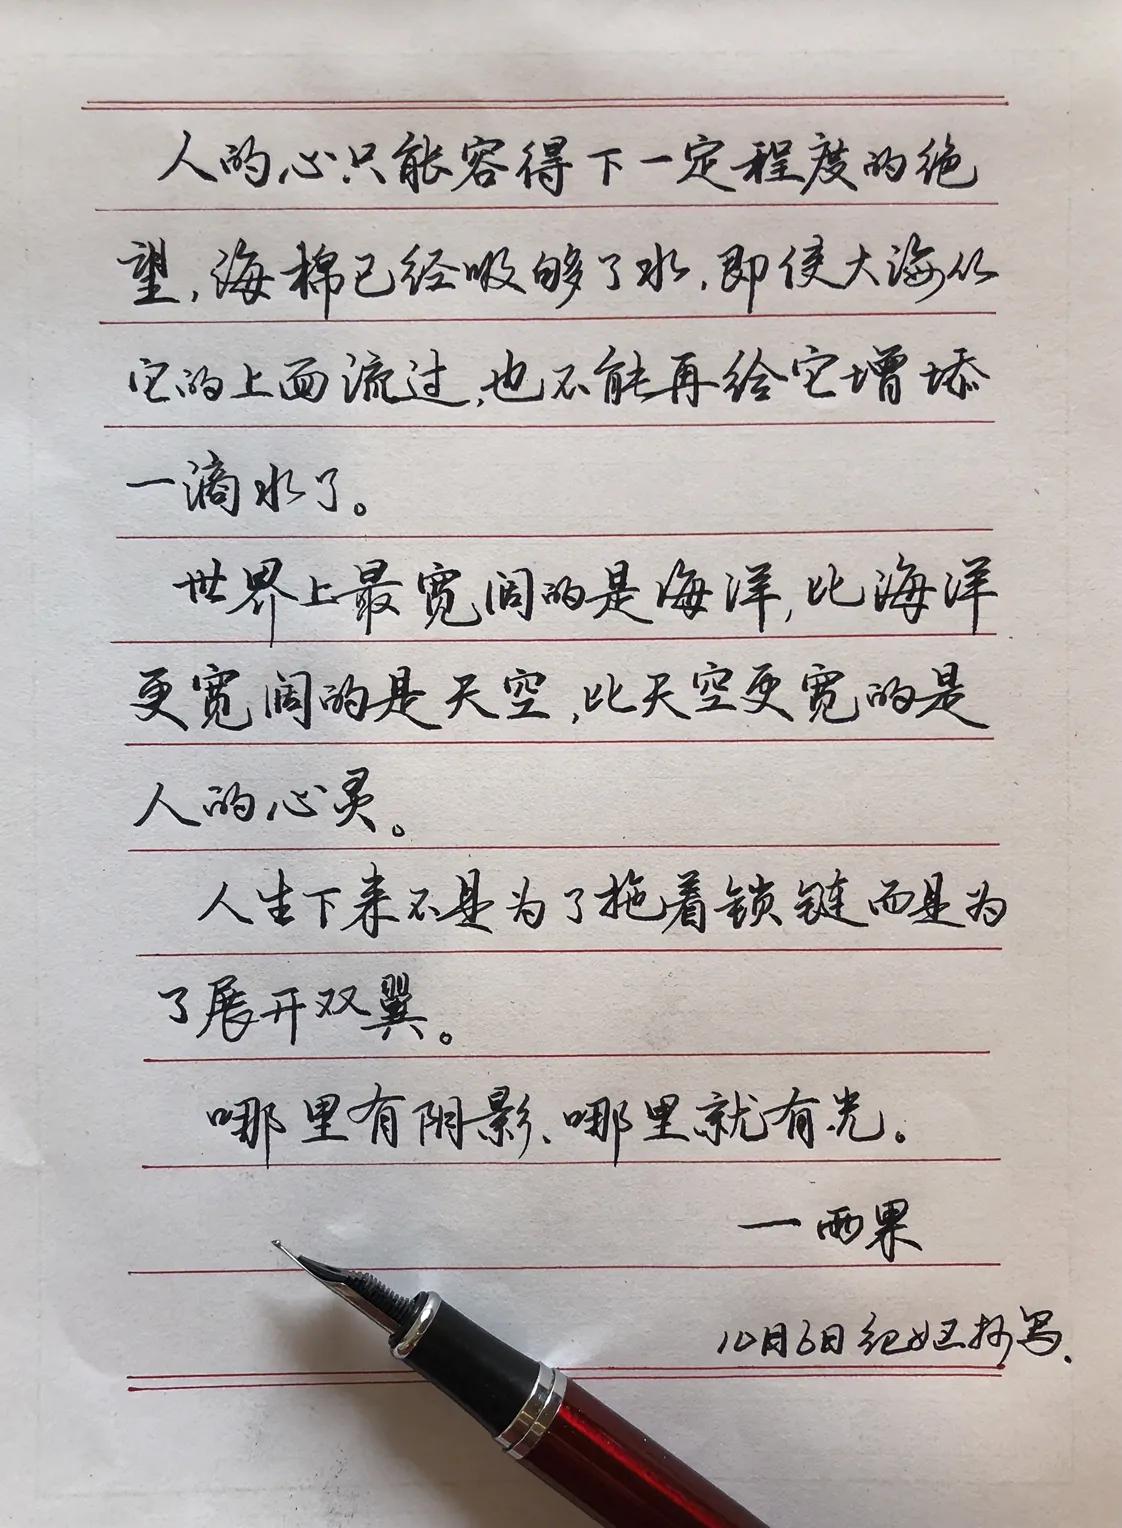 人的心只能容得下一定程度的绝
望,海棉已经吸够了水,即使大海从
它的上面流过,也不能再给它增添
一滴水了。
世界上最宽阔的是海洋,比海洋
更宽阔的是天空,比天空更宽的是
人的心灵。
人生下来不是为了拖着锁链而是为
了展开双翼。
哪里有阴影、哪里就有光。
一雨果
10月6日 抄写.